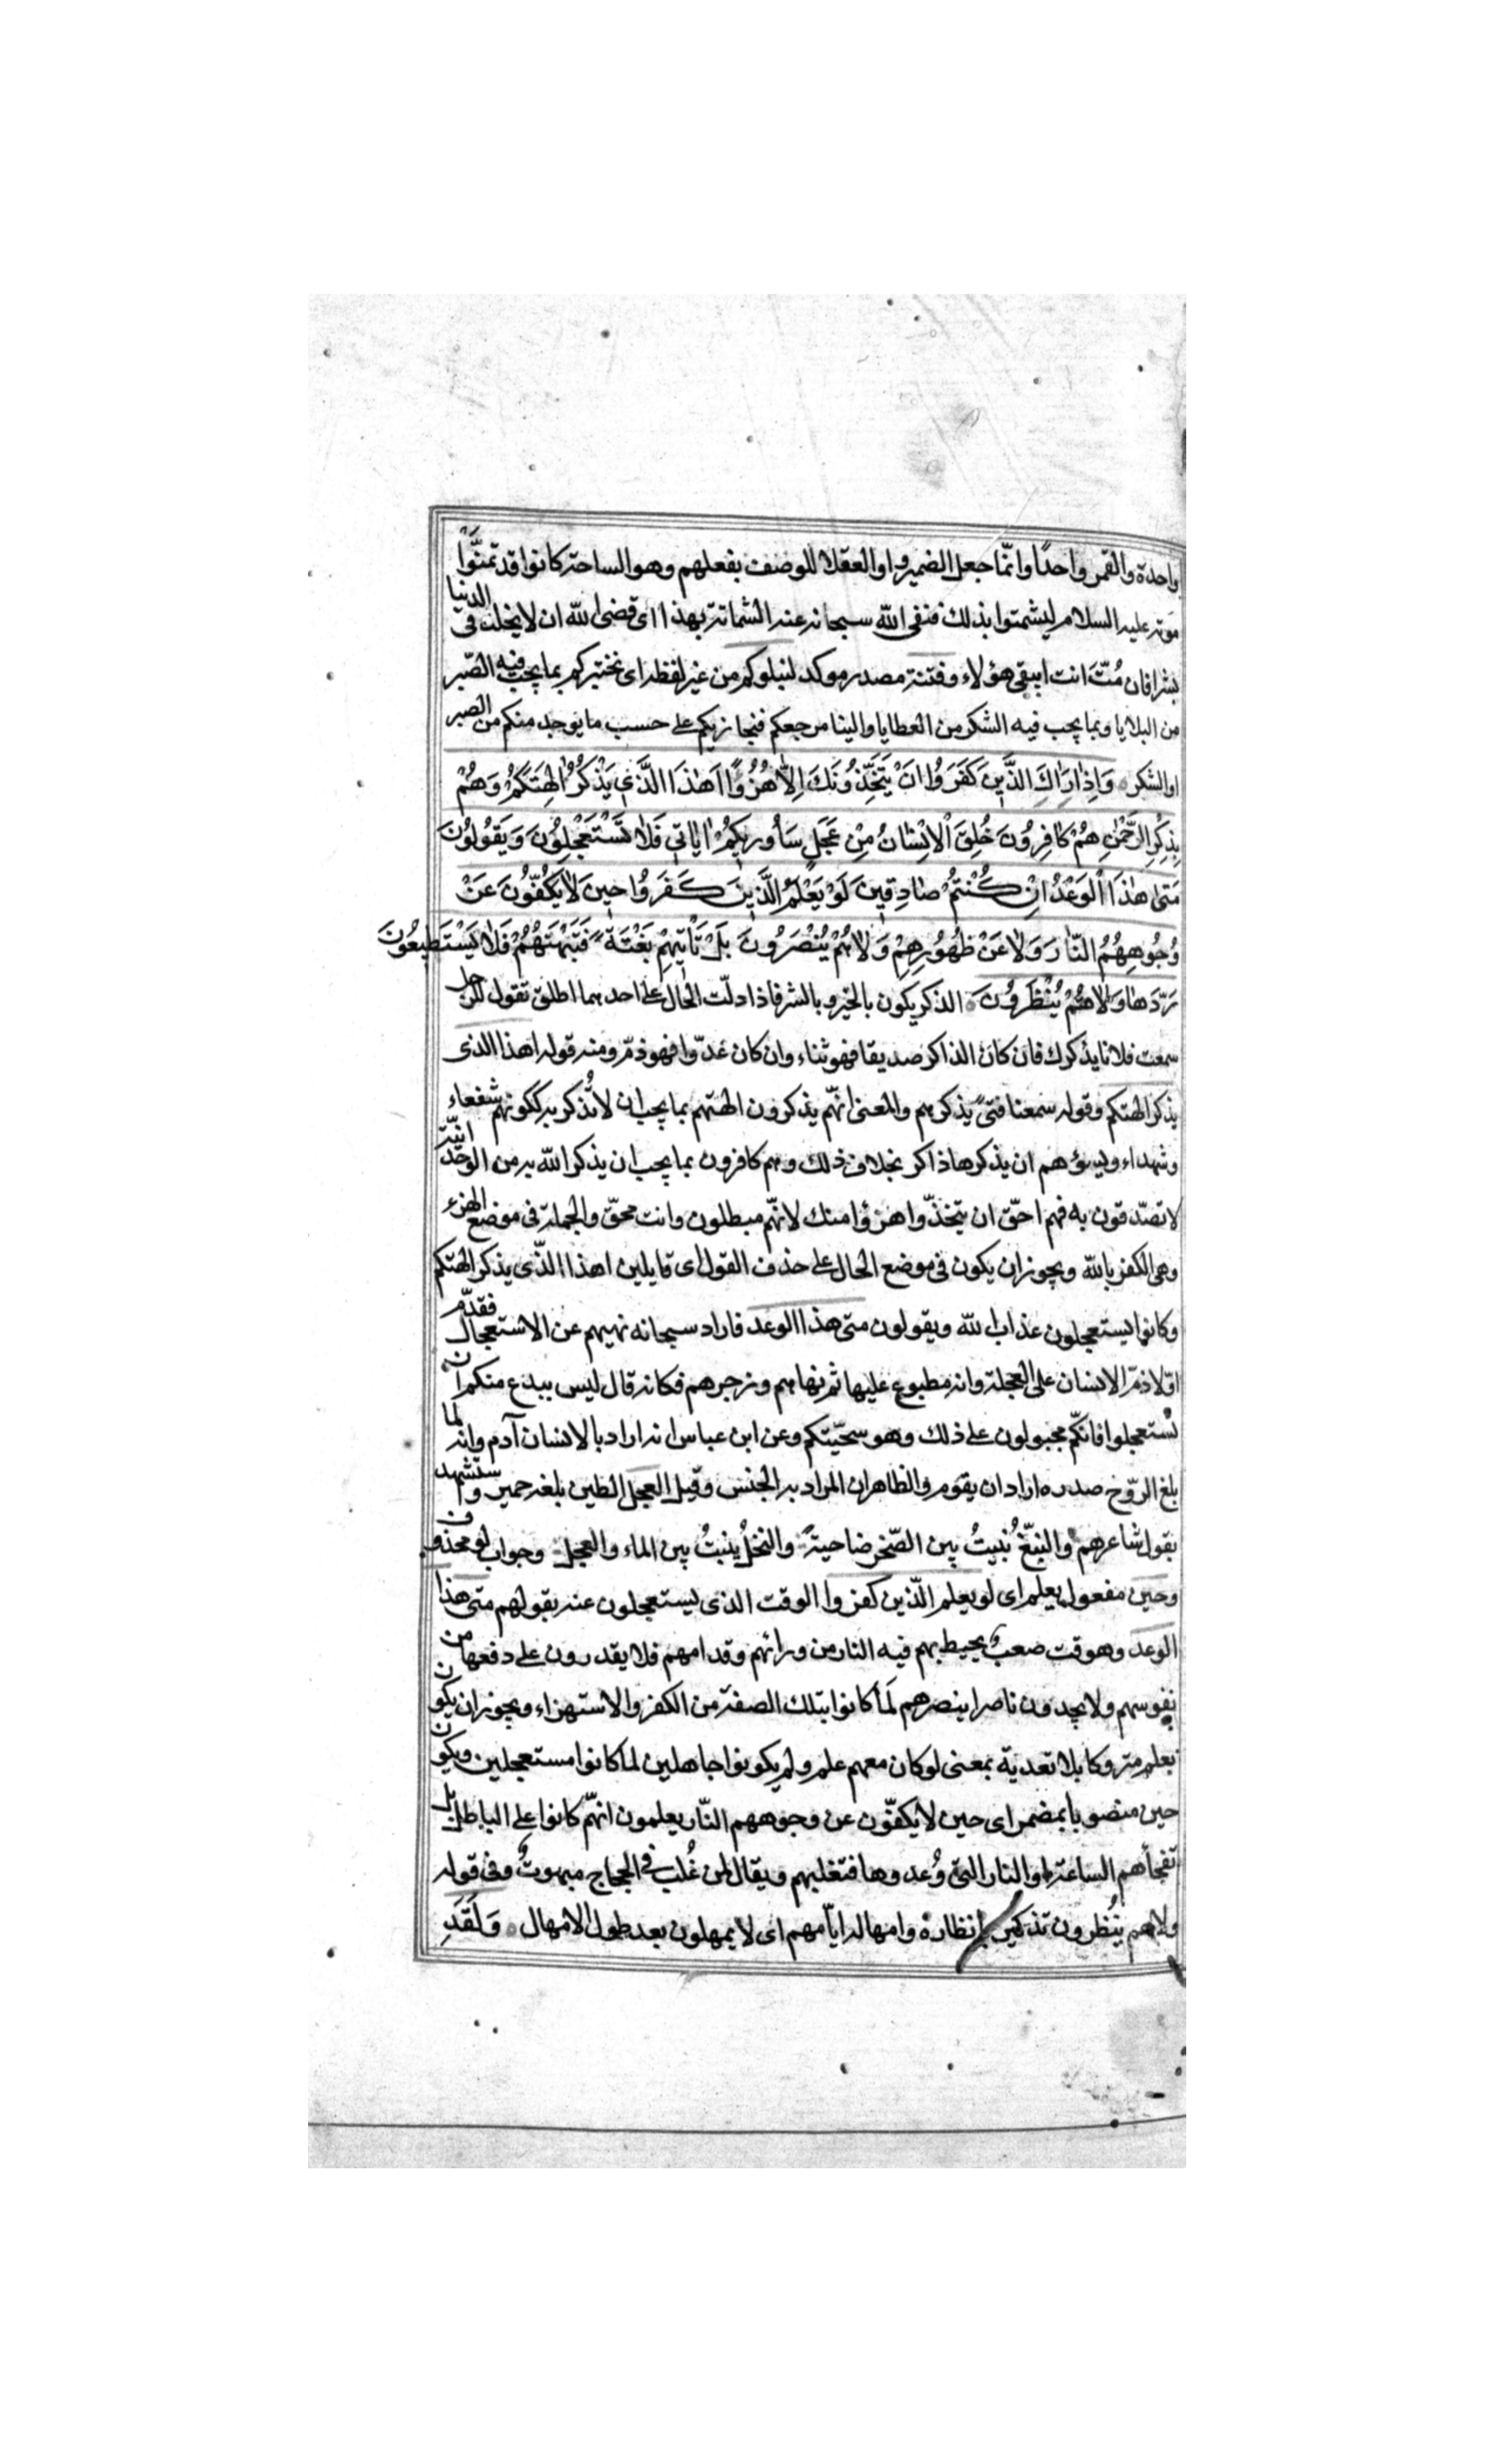 واحدة والقمر واحدًا وانّما جعل الضمير واو العقلا للوصف بفعلهم وهو الساحة كانوا قد تمنّوا
موته عليه السلام ليشمتوا بذلك فنفى الله سبحانه عنه الشماتة بهذا اى قضى الله ان لا يخلد فى الدنيا
بشرا فان مُتّ انت ايبقى هؤلاء وفتنة مصدر موكد لنبلوكم من غير لفظه اى نختبركم بما يجب فيه الصّبر
من البلايا وبما يجب فيه الشكر من العطايا والينا مرجعكم فنجازيكم على حسب ما يوجد منكم من الصبر
او الشكر وَاِذٰا رَاٰكَ الَّذّينَ كَفَرَوُا اِنْ يَتَّخِذُونَكَ اِلّٰا هُزُوًا اَهٰذَا الَّذّي يَذْكُرُ اٰلِهَتَكُمْ وَهُمْ
بِذِكْرِ الرَّحْمٰنِ هُمْ كٰافِرُونَ خُلِقَ الْاِنْسٰانُ مِنْ عَجَلٍ سَاُورِيكُمْ اٰيٰاتي فَلٰا تَسْتَعْجِلُونَ وَيَقُولُونَ
مَتىٰ هٰذَا الْوَعْدُ اِنْ كُنْتُمْ صٰادِقينَ لَوْ يَعْلَمُ الَّذينَ كَفَرُوا حينَ لٰا يَكُفّوُنَ عَنْ
وُجُوهِهُمُ النّٰارَ وَلٰا عَنْ ظُهُورِهِمْ وَلٰا هُمْ يُنْصَرُونَ بَلْ تَأْتيهِمْ بَغْتَةً فَتَبْهَتُهُمْ فَلٰا يَسْتَطيعُونَ
رَدَّهٰا وَلٰا هُمْ يُنْظَرُونَ الذكر يكون بالخير وبالشر فاذا دلّت الحال على احدهما اطلق تقول للرجل
سمعت فلانا يذكرك فان كان الذاكر صديقا فهو ثناء وان كان عدّوا فهو ذمّ ومنه قوله اهذا الذى
يذكر الهتكم وقوله سمعنا فتىً يذكرهم والمعنى انهّم يذكرون الهتهم بما يجب ان لا تُذكر به ككونهم شفعاء
وشهداء ويسؤهم ان يذكرها ذاكر بخلاف ذلك وهم كافرون بما يجب ان يذكر الله به من الوحدانيّة
لا تصّدقون به فهم احّق ان يتخذّوا هزؤا منك لانهّم مبطلون وانت محقّ والجملة فى موضع الهزء
وهى الكفر بالله ويجوز ان يكون فى موضع الحال على حذف القول اى قايلين اهذا الذّى يذكر الهتكم
وكانوا يستعجلون عذاب الله ويقولون متى هذا الوعد فاراد سبحانه نهيهم عن الاستعجال فقدّم
اوّلا ذمّ الانسان على العجلة وانه مطبوع عليها ثم نهاهم وزجرهم فكانه قال ليس ببدع منكم ان
تستعجلوا فانكّم مجبولون على ذلك وهو سجّيتكم وعن ابن عباس انه اراد بالانسان آدم وانه لما
بلغ الرّوح صدره اراد ان يقوم والظاهر ان المراد به الجنس وقيل العجل الطين بلغة حمير واستشهد
بقول شاعرهم والنبّع يُنبتُ بين الصّخر ضاحيةً والنخلُ ينبتُ بين الماء والعجل وجواب لو محذوف
وحين مفعول يعلم اى لو يعلم الّذين كفروا الوقت الذى يستعجلون عنه بقولهم متى هذا
الوعد وهو وقت صعبٌ يحيط بهم فيه النار من ورائهم وقدامهم فلا يقدرون على دفعها من
نفوسهم ولا يجدون ناصرا ينصرهم لَما كانوا بتلك الصفة من الكفر والاستهزاء ويجوز ان يكون
يعلم متروكا بلا تعدية بمعنى لو كان معهم علم ولم يكونوا جاهلين لما كانوا مستعجلين ويكون
حين منصوبا بمضمر اى حين لا يكفّون عن وجوههم النّار يعلمون انهّم كانوا على الباطل بل
تفجأهم الساعة او النار التى وُعدوها فتغلبهم ويقال لمن غُلب فى الحجاج مبهوتٌ وفى قوله
ولا هم ينُظرون تذكير بانظاره وامهاله ايّامهم اى لا يمهلون بعد طول الامهال وَلَقَدِ